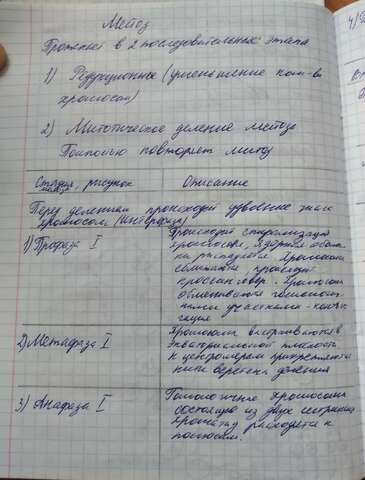 Мейоз
Протекает в 2 последовательных этапа
1) Редукционное (уменьшение кол-ва
хромосом)
2) Митотическое деление мейоза
Полностью повторяет митоз
Стадия, рисунок Описание
Перед делением происходит удвоение числа
хромосом (интерфаза)
1) Профаза I Происходит спирализация
хромосом, ядерная оболоч
ка распадается. Хромосомы
сближаются, происходит
кроссинговер. Хромосомы
обмениваются гомологич
ными участками - конъю
гация
2) Метафаза I Хромосомы выстраиваются в
экваториальной плоскости
к центромерам прикрепляются
нити веретена деления
3) Анафаза I Гомологичные хромосомы
состоящие из двух сестринских
хроматид расходятся к
полюсам.
4)